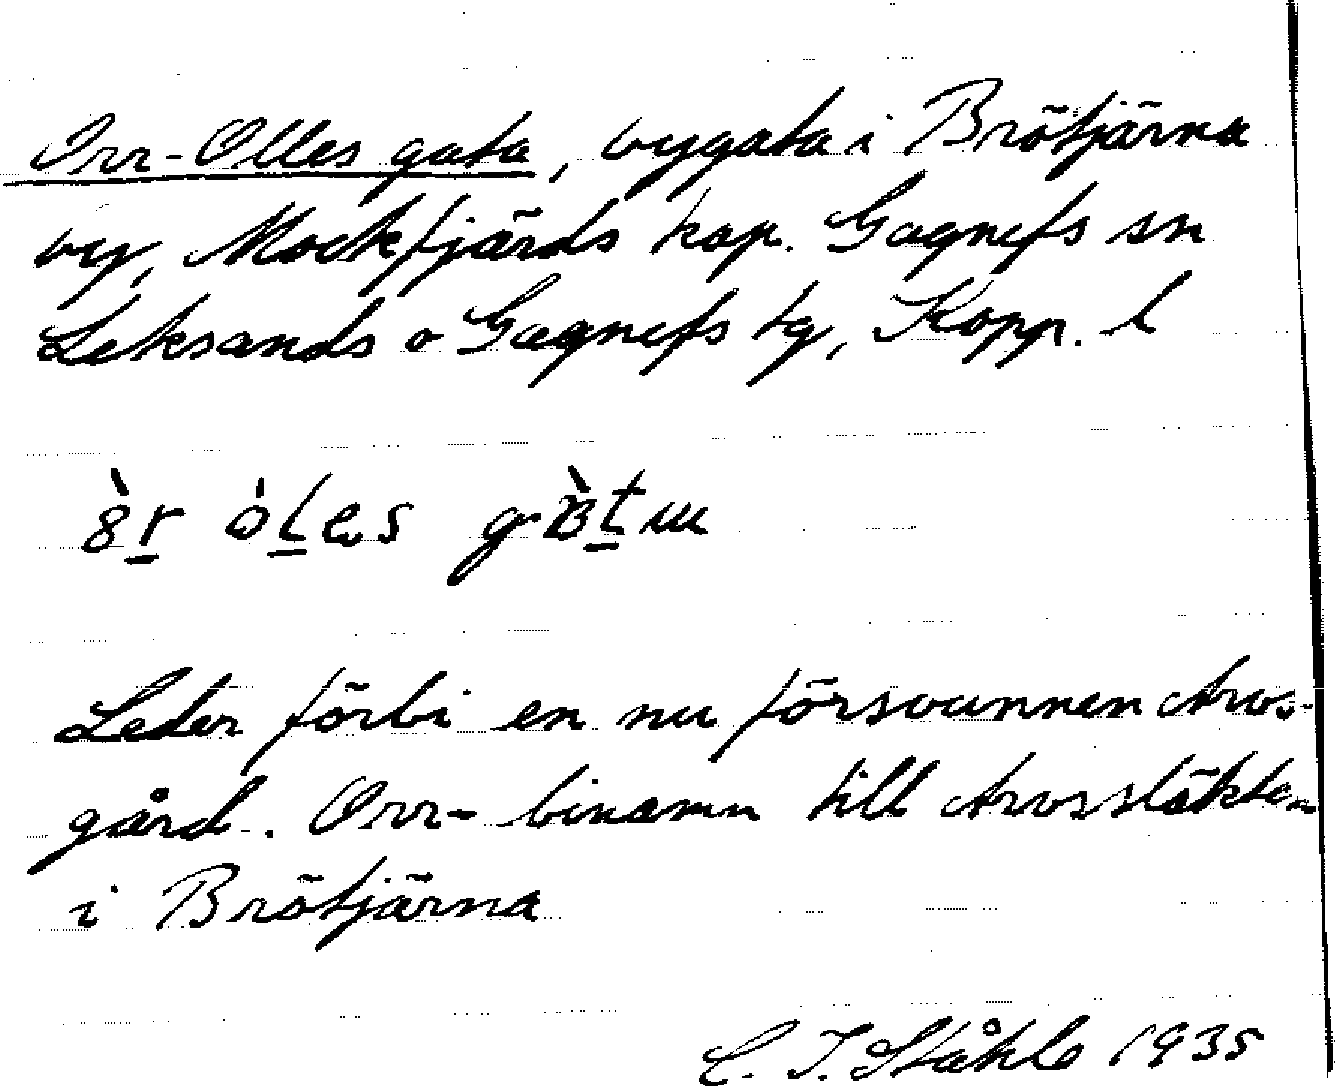 Orr-Olles gata, bygata i Brötjärna
by, Mockfjärds kap. Gagnefs sn
Leksands o Gagnefs tg, Kopp. l
Leder förbi en nu försvunnen Arvs-
gård. Orr- binamn till Arvssläkten
i Brötjärna
C. I. Ståhle 1935